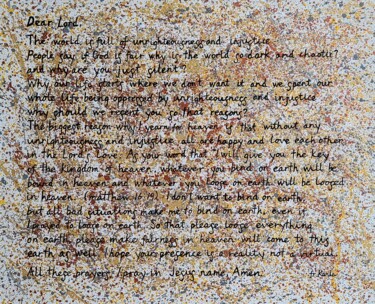 Dear Lord.
The world is full of unrighteousness and injustice
People say if God is fair why is the world so dark and chaotic?
and why are you just silent?
Why our life starts where we don't want it and we spent our
whole life being oppressed by unrighteousness and injustice
why should we resent you so that reasons
The biggest reason why I yearn for heaven is that without any
unrighteousness and injustice all are happy and love each other
in the Lord's Love. As your word that I will give you the key
of the kingdom of heaven, whatever you bind on earth will be
bound in heaven and whatever you loose on earth will be loosed
in heaven. (Matthew 16:19) I don't want to bind on earth
but all bad situations make me to bind on earth, even if
I prayed to loose on earth. So that please loose everything
on earth, please make fairness in heaven will come to this
earth as well. I hope your presence is a reality not a virtual
All these prayers, I pray in Jesus name, Amen.